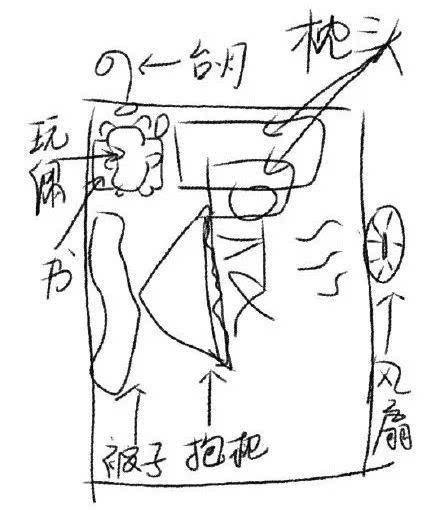 台月
枕头
玩偶
书
风扇
被子
抱枕